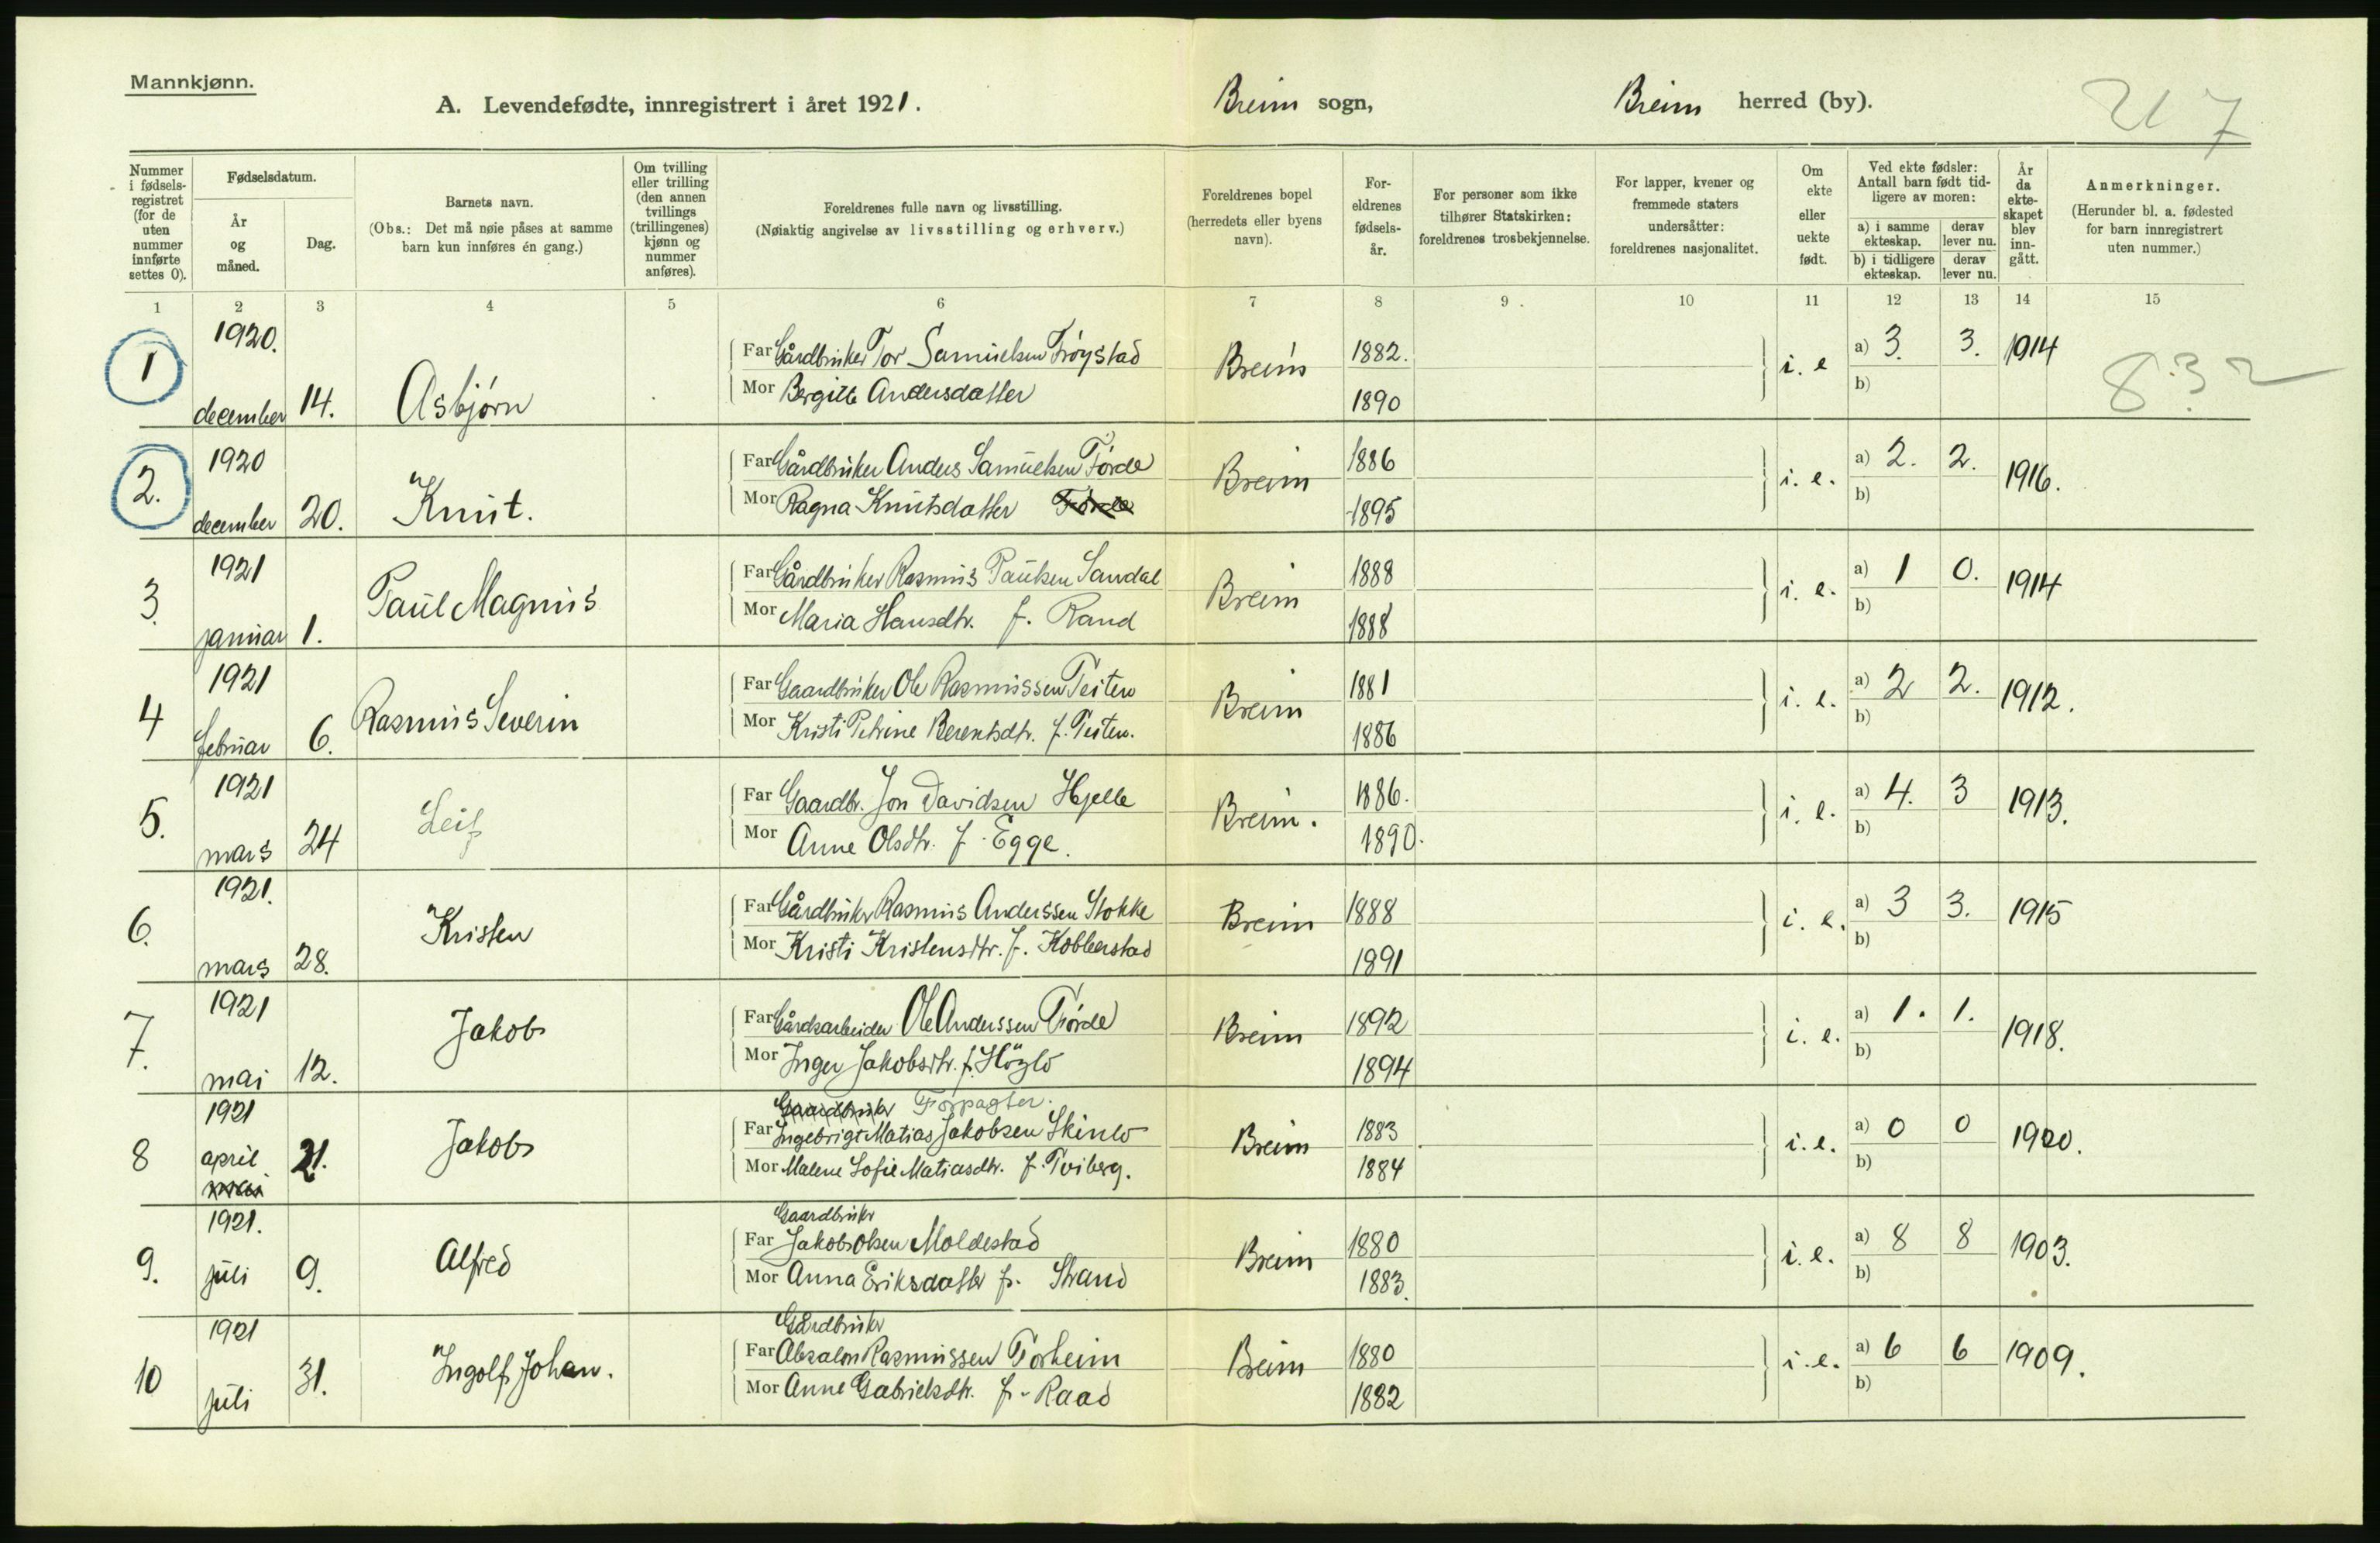 Mannkjønn.
A. Levendefødte, innregistrert i året 1921. Breim sogn, Breim herred (by). 217
Nummer i fødsels-registret (for de uten nummer innførte settes 0).
Fødselsdatum.
År og måned.
Dag.
Barnets navn.
(Obs.: Det må nøie påses at samme barn kun innføres én gang.)
Om tvilling eller trilling (den annen tvillings (trillingenes) kjønn og nummer anføres).
Foreldrenes fulle navn og livsstilling.
(Nøiaktig angivelse av livsstilling og erhverv.)
Foreldrenes bopel (herredets eller byens navn).
For-eldrenes fødsels-år.
For personer som ikke tilhører Statskirken: foreldrenes trosbekjennelse.
For lapper, kvener og fremmede staters undersåtter: foreldrenes nasjonalitet.
Om ekte eller uekte født.
Ved ekte fødsler: Antall barn født tid-ligere av moren:
a) i samme ekteskap. derav lever nu.
b) i tidligere ekteskap. derav lever nu.
År da ekte-skapet blev inn-gått.
Anmerkninger.
(Herunder bl. a. fødested for barn innregistrert uten nummer.)
1 2 3 4 5 6 7 8 9 10 11 12 13 14 15
1 1920. december 14. Asbjørn
Far Gårdbruker Tor Samuelsen Frøystad Breim 1882. i. e a) 3. 3. 1914
Mor Bergitte Andersdatter 1890 b)
832
2. 1920 december 20. Knut.
Far Gårdbruker Anders Samuelsen Førde Breim 1886 i. e. a) 2. 2. 1916.
Mor Ragna Knutsdatter Førde 1895 b)
3. 1921 januar 1. Paul Magnus
Far Gårdbruker Rasmus Paulsen Sandal Breim 1888 i. e. a) 1 0. 1914
Mor Maria Hansdtr. f. Rand 1888 b)
4 1921 februar 6. Rasmus Severin
Far Gaardbruker Ole Rasmussen Teiten Breim 1881 i. e. a) 2 2. 1912.
Mor Kristi Petrine Berentsdtr. f. Teiten. 1886 b)
5. 1921 mars 24 Leif
Far Gaardbr. Jon Davidsen Hjelle Breim. 1886. i. e. a) 4. 3 1913.
Mor Anne Olsdtr. f. Egge. 1890. b)
6. 1921. mars 28. Kristen
Far Gårdbruker Rasmus Anderssen Stokke Breim 1888 i. e. a) 3 3. 1915
Mor Kristi Kristensdtr. f. Kobberstad 1891 b)
7. 1921 mai 12. Jakob
Far Gårdsarbeider Ole Anderssen Førde Breim 1892 i. e. a) 1. 1. 1918.
Mor Inger Jakobsdtr. f. 1894 b)
8 1921 april mai 21. Jakob
Gaardbruker Forpagter.
Far Ingebrigt Matias Jakobsen Skinlo Breim 1883 i. e. a) 0 0 1920.
Mor Malene Sofie Matiasdtr. f. Tviberg. 1884 b)
9. 1921. juli 9. Alfred
Gaardbruker
Far Jakob Olsen Moldestad Breim 1880 i. e. a) 8 8 1903.
Mor Anna Eriksdatter f. Strand 1883. b)
10 1921 juli 31. Ingolf Johan.
Gårdbruker
Far Absalon Rasmussen Torheim Breim 1880 i. e. a) 6 6 1909.
Mor Anne Gabrielsdtr. f. Raad 1882 b)